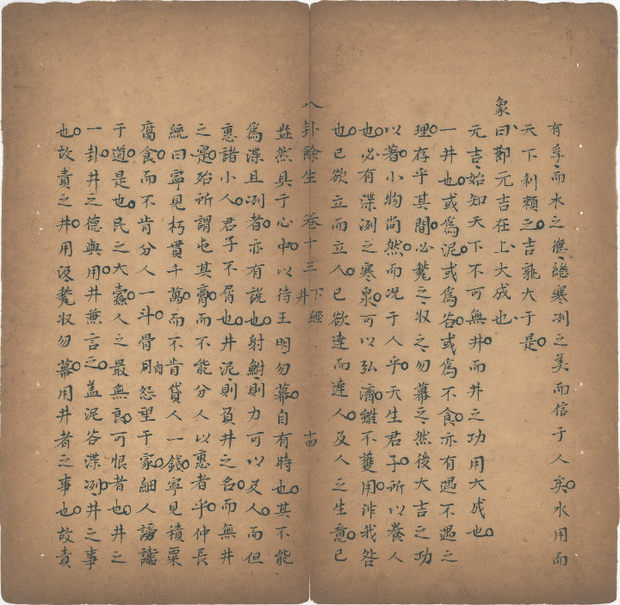 有孚而水之德繼寒冽之美而信于人矣水用而
天下利賴之吉孰大于是
象曰鄭元吉在上大成也
元吉始知天下不可無井而井之功用大成也
一井也或爲泥或爲谷或爲不食亦有遇不遇之
理存乎其間必甃之收之勿幕之然後大吉之功
以著小物尚然而况于人乎天生君子所以養人
也必有渫冽之寒泉可以弘濟雖不獲用沣我咎
也已欲立而立人已欲達而達人及人之生意已
八卦餘生 卷十三 下經 井 十四
盎然具于心中以待王明勿幕自有時也其不能
爲渫且冽者亦有説也射鮒則力可以及人而但
惠諸小人君子不屑也井泥則負井之名而無井
之寔殆所謂屯其膏而不能分人以惠者乎仲長
統曰寧見朽貫千萬而不肯貸人一錢寧見積粟
腐食而不肯分人一斗骨肉怨望于家細人謗讟
于道是也民之大蠹人之最無良可恨者也井之
一卦井之德與用井兼言之盖泥谷渫冽井之事
也故責之井用汲甃收勿幕用井者之事也故責